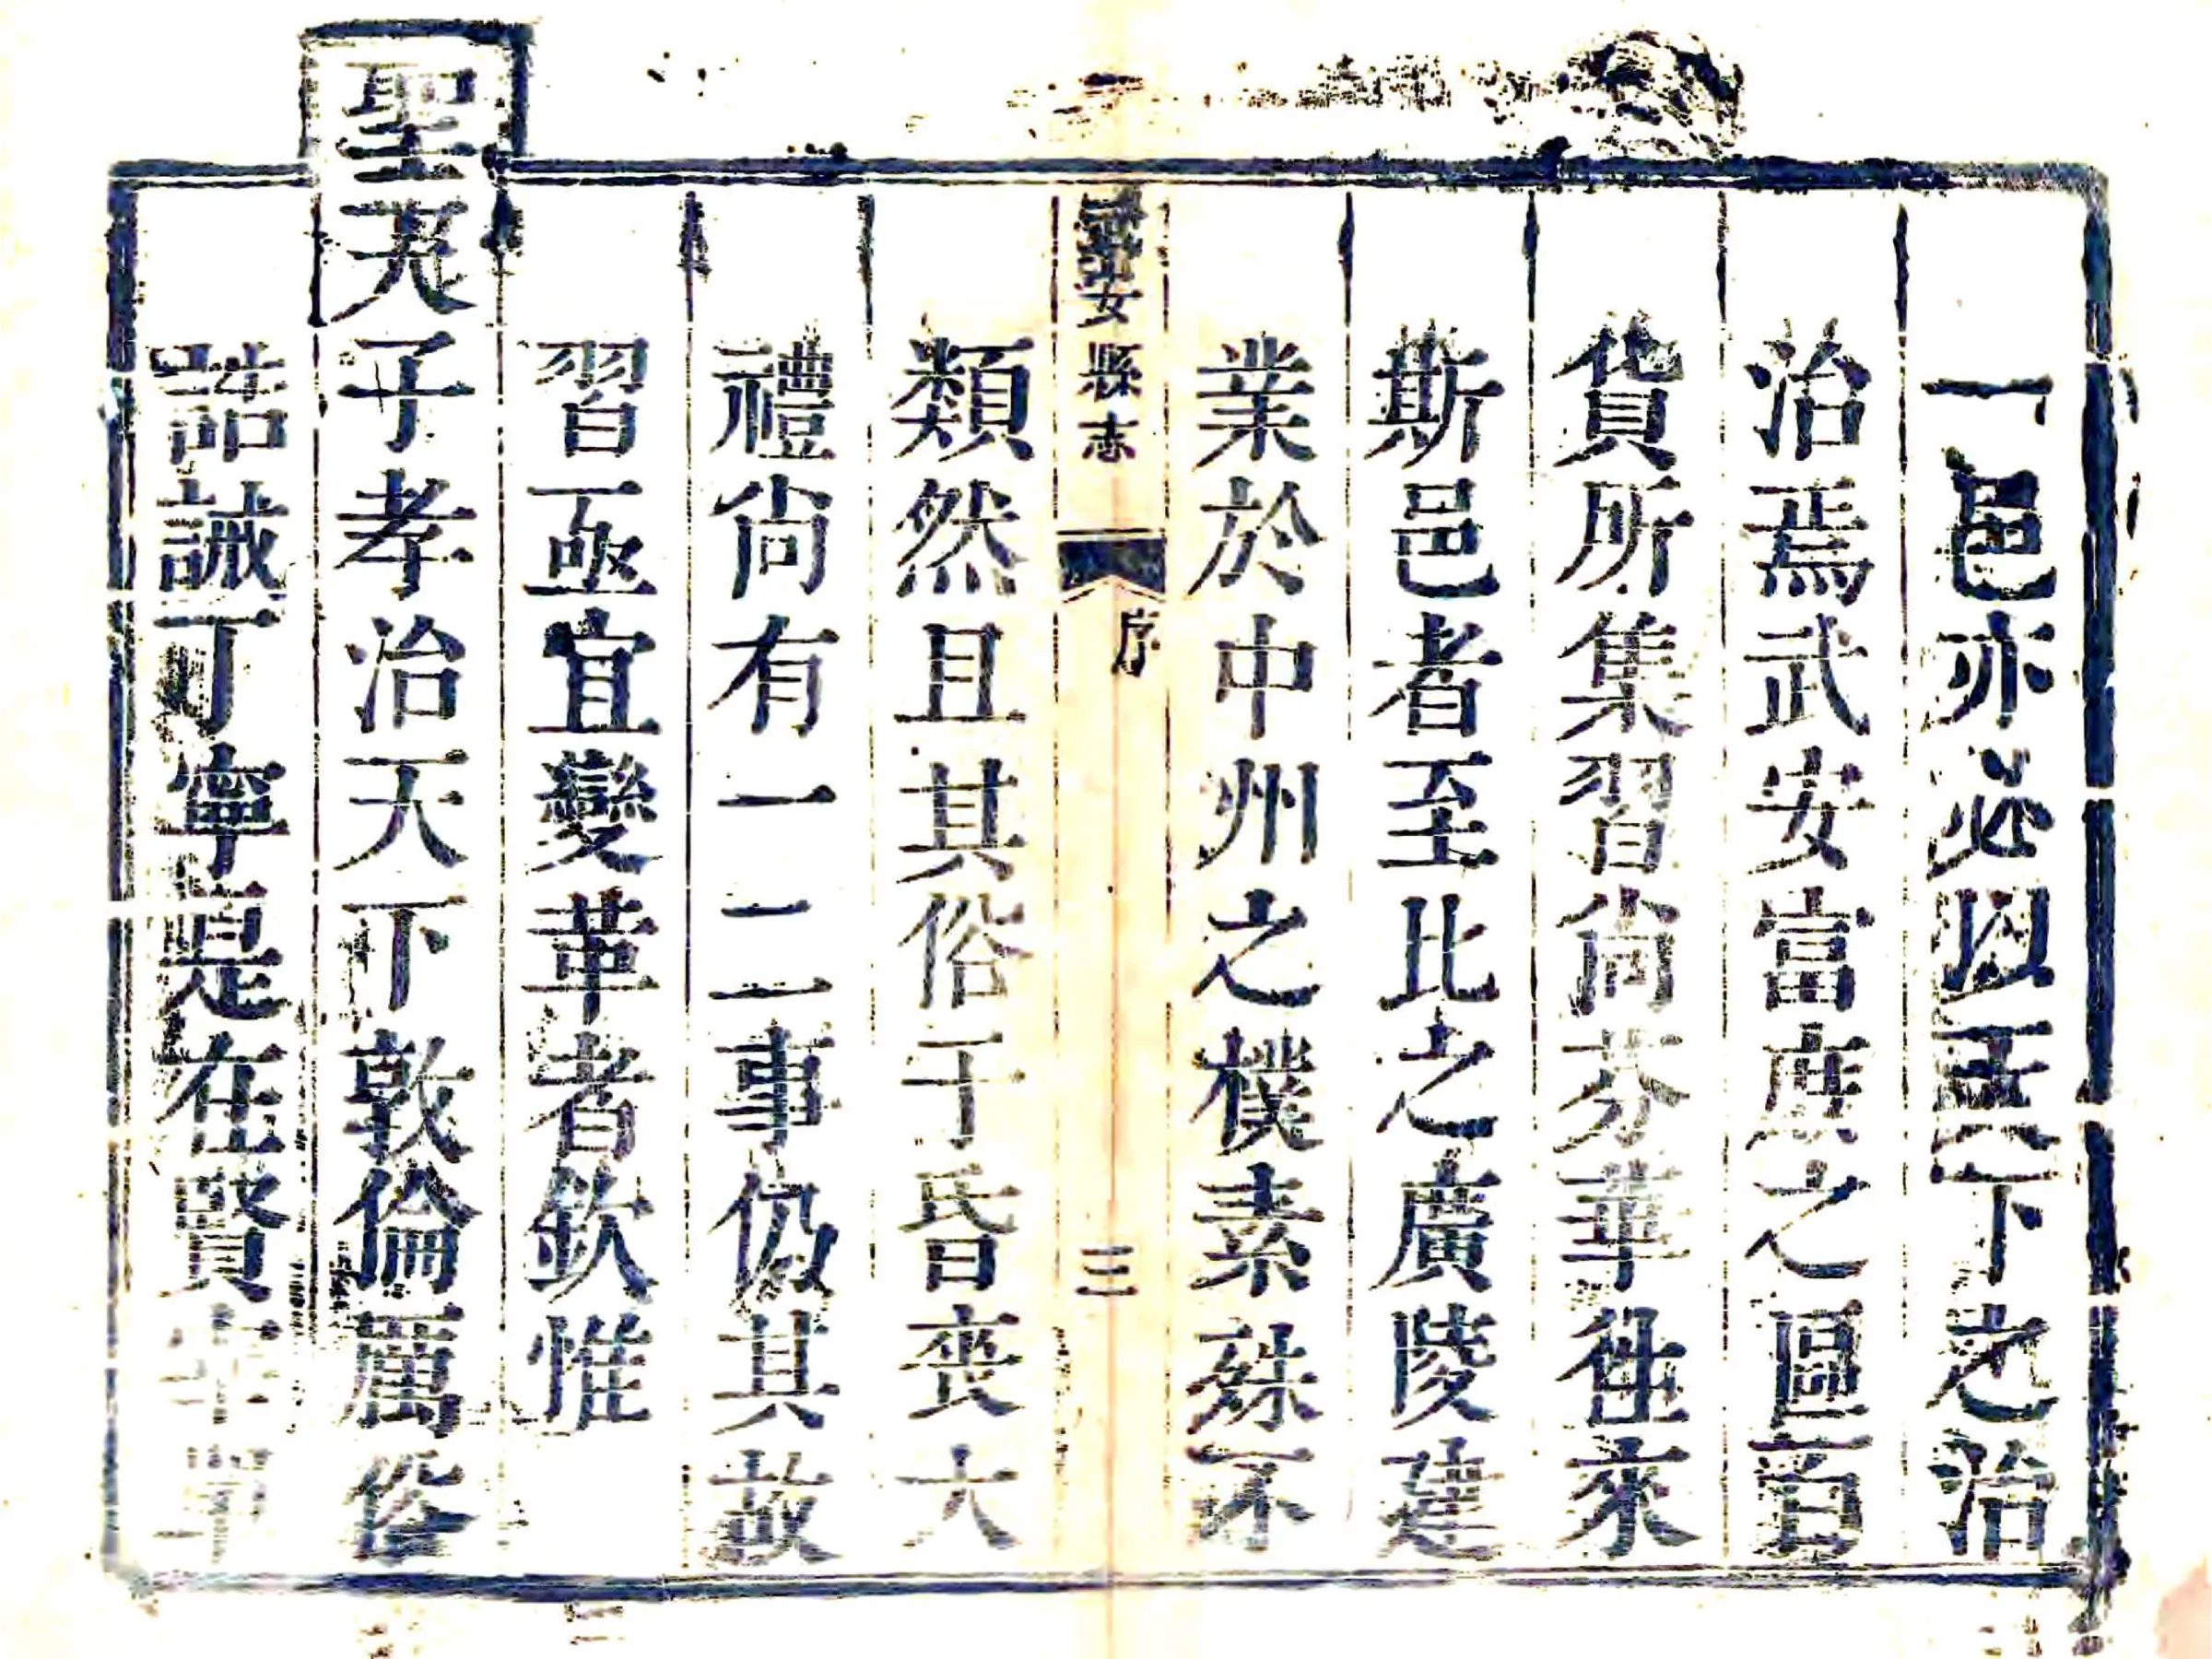 一邑亦必以天下之治
治焉武安富庶之區百
貨所集習尚芬華徃來
斯邑者至比之廣陵建
業於中州之樸素殊不
武安縣志 序 三
類然且其俗于昏喪大
禮尚有一二事仍其故
習亟宜變革者欽惟
聖天子孝治天下敦倫厲俗
誥誡丁寧是在賢宰